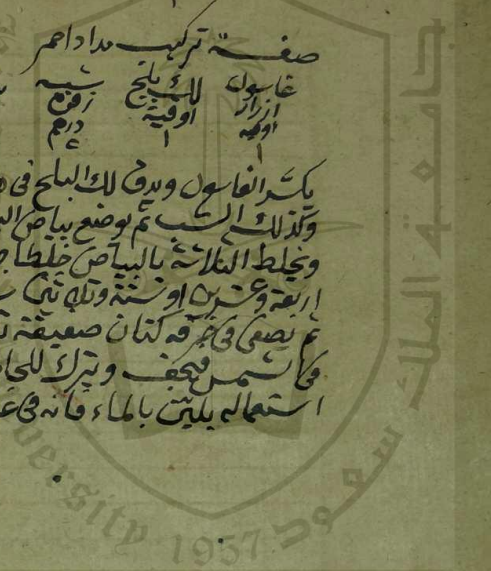 صفة تركيب مداد احمر
غاسول لك بلح شبه
ازرار اوقية زفره
اوقيه ١ درهم
١
يكسر الغاسول ويدق لك البلح فى
وكذلك الشب ثم يوضع بياض
ويخلط الثلاثة بالبياض خلطا
اربعة وعشرين او ستة وثلاثين
ثم يصفى فى خرقه كتان صفيقة
فى الشمس فيجف ويترك للحا
استعماله يلين بالماء فانه فى
جامعة الملك سعود
ersity 1957